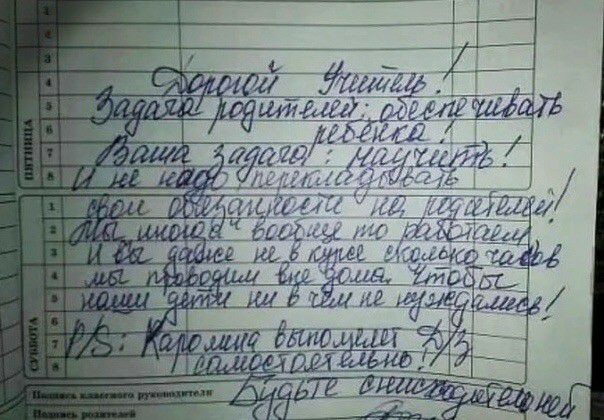 1
2
3
4
Дорогой Учитель!
5
Задача родителей: обеспечивать
6
ребёнка!
ПЯТНИЦА
7
Ваша задача: научить!
8
И не надо перекладывать
1
свои обязанности на родителей!
2
Мы иногда вообще то работаем
3
И вы даже не в курсе сколько часов
4
мы проводим вне дома. Чтобы
5
наши дети ни в чём не нуждались!
6
СУББОТА
7
P/S: Каролина выполняет Д/З
8
самостоятельно!
Подпись классного руководителя
Будьте снисходительной
Подпись родителей